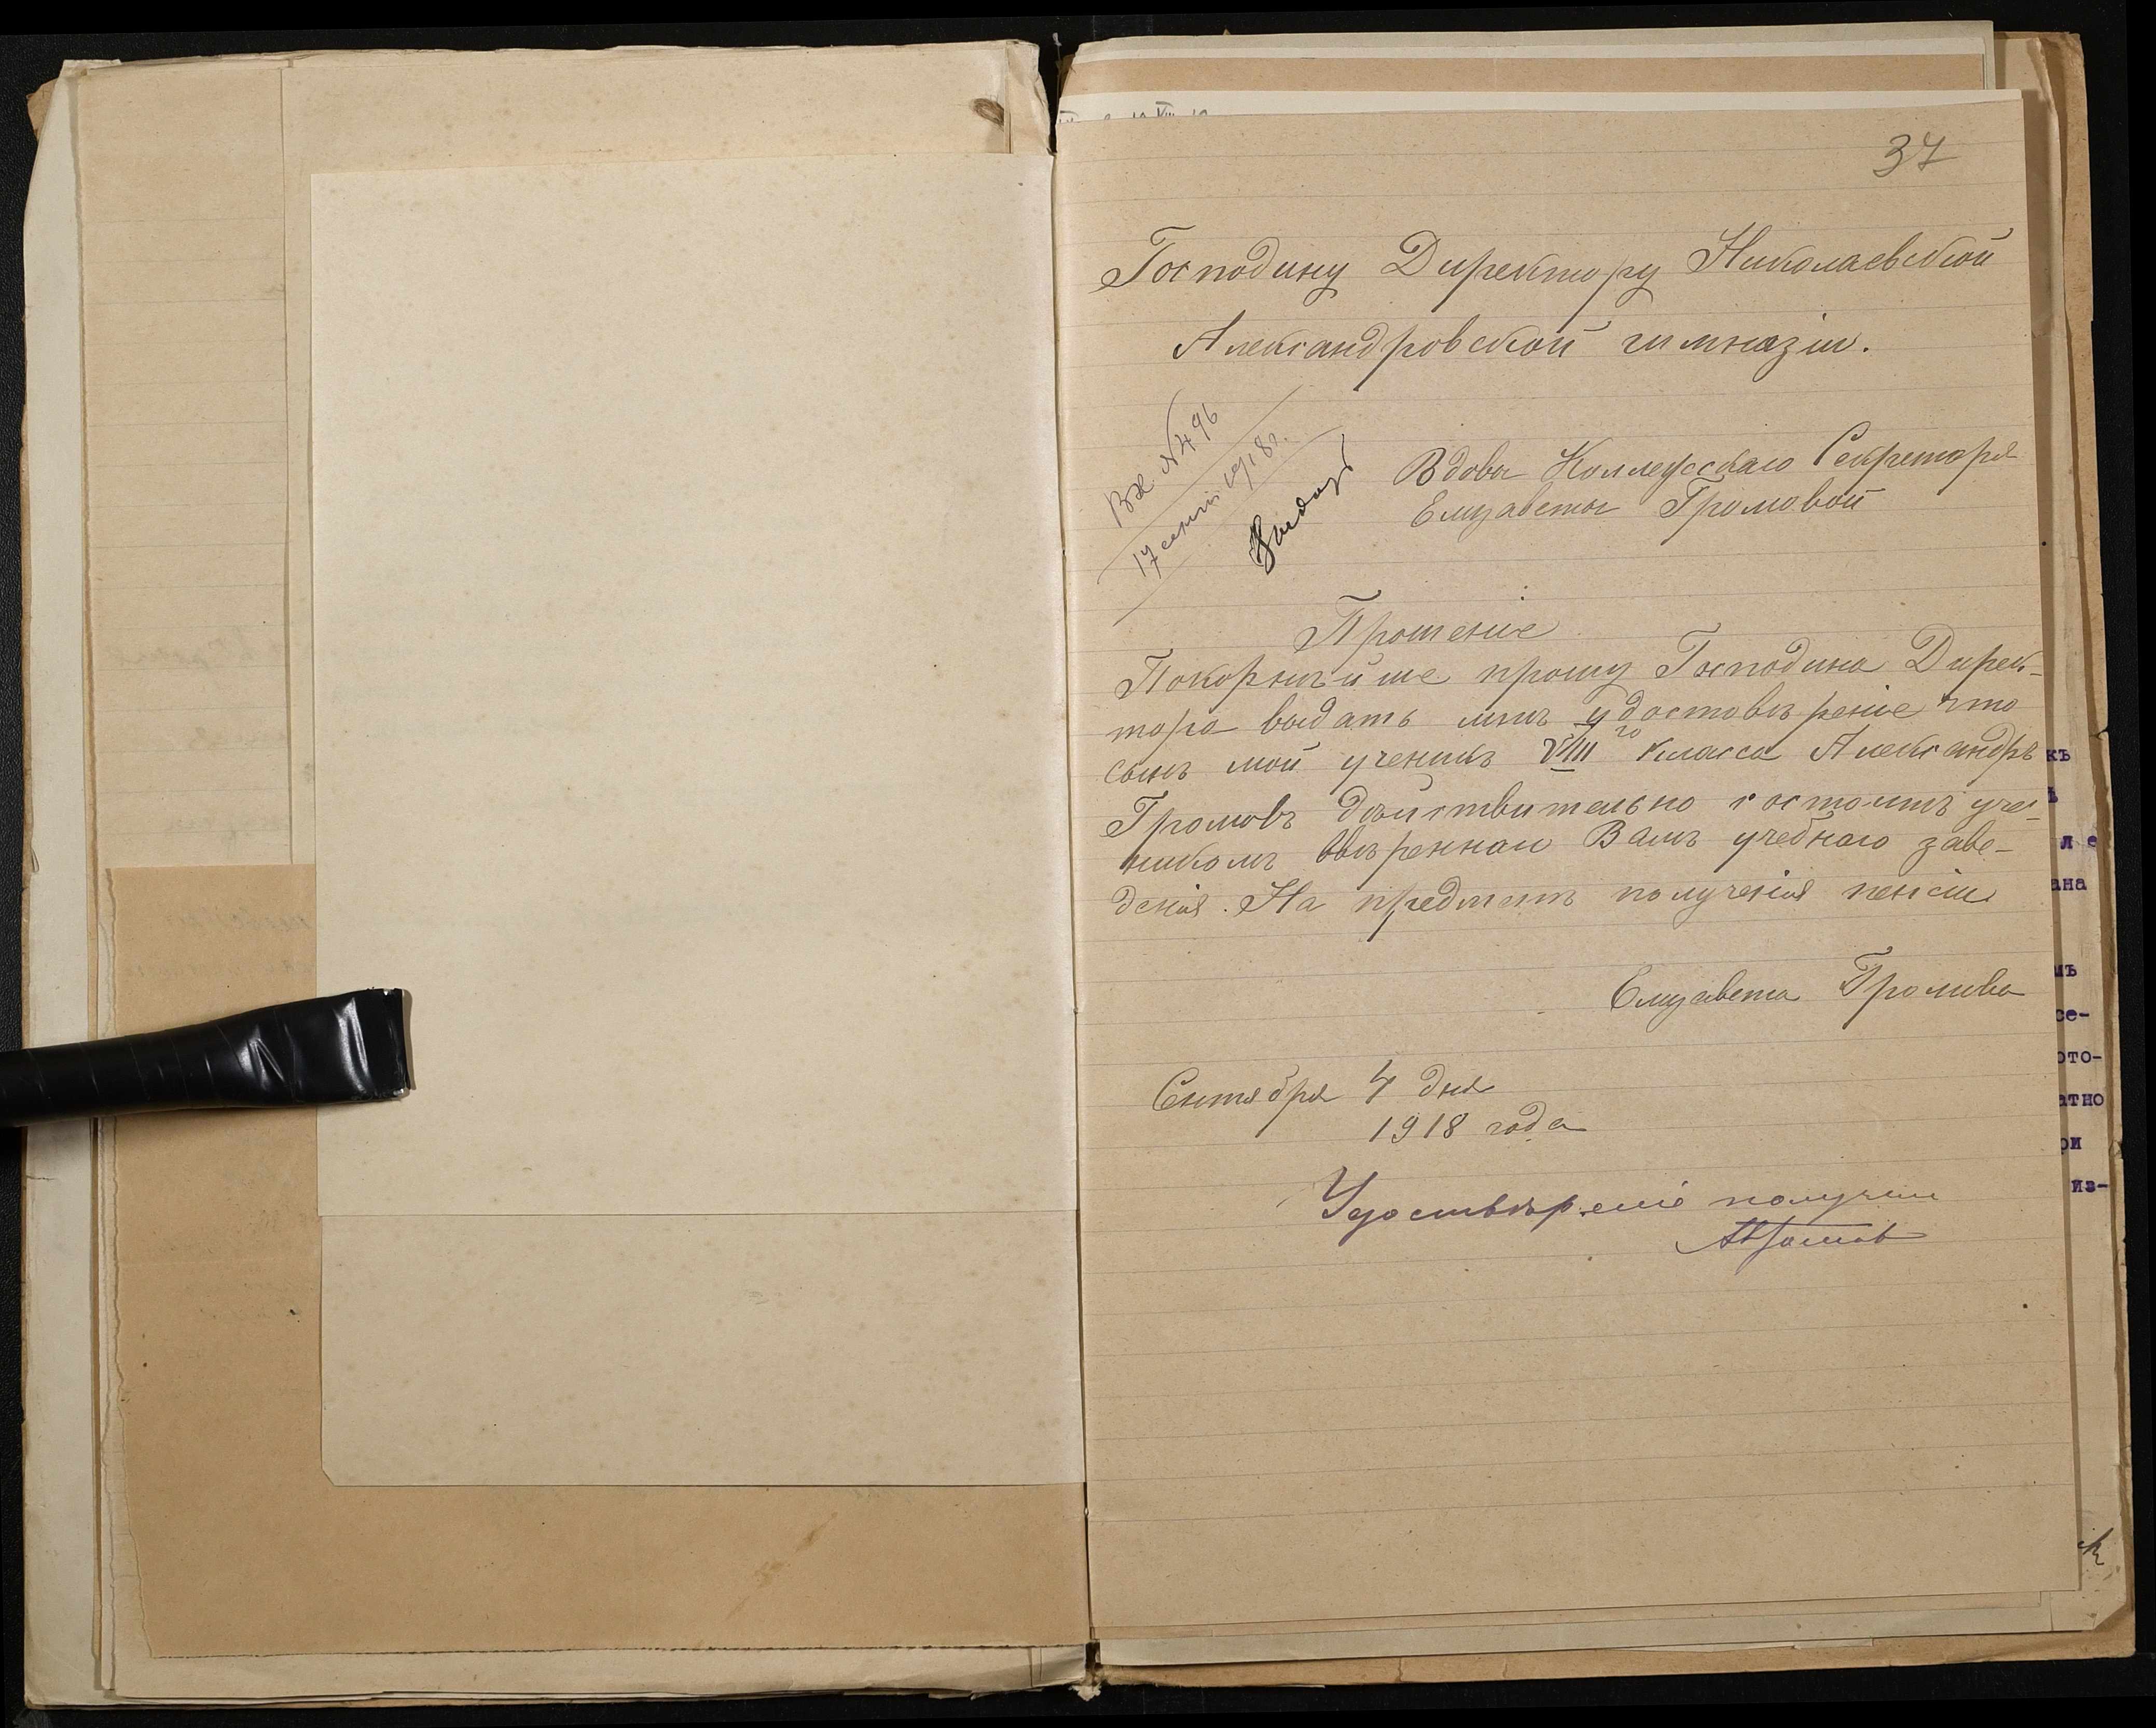 37
Господину Директору Николаевской
Александровской гимназіи.
Вх. № 496
17 сент. 1918 г.
Выдать
Вдовы Коллежскаго Секретаря
Елизаветы Громовой
Прошеніе
Покорнѣйше прошу Господина Дирек-
тора выдать мнѣ удостовѣреніе что
сынъ мой ученикъ VIII го класса Александръ
Громовъ дѣйствительно состоитъ уче-
никомъ ввѣреннаго Вамъ учебнаго заве-
денія. На предметъ полученія пенсіи
Елизавета Громова
Сентября 4 дня
1918 года
Удостовѣреніе получил
АГромов
къ
л е
ана
мъ
се-
ото-
атно
ри
из-